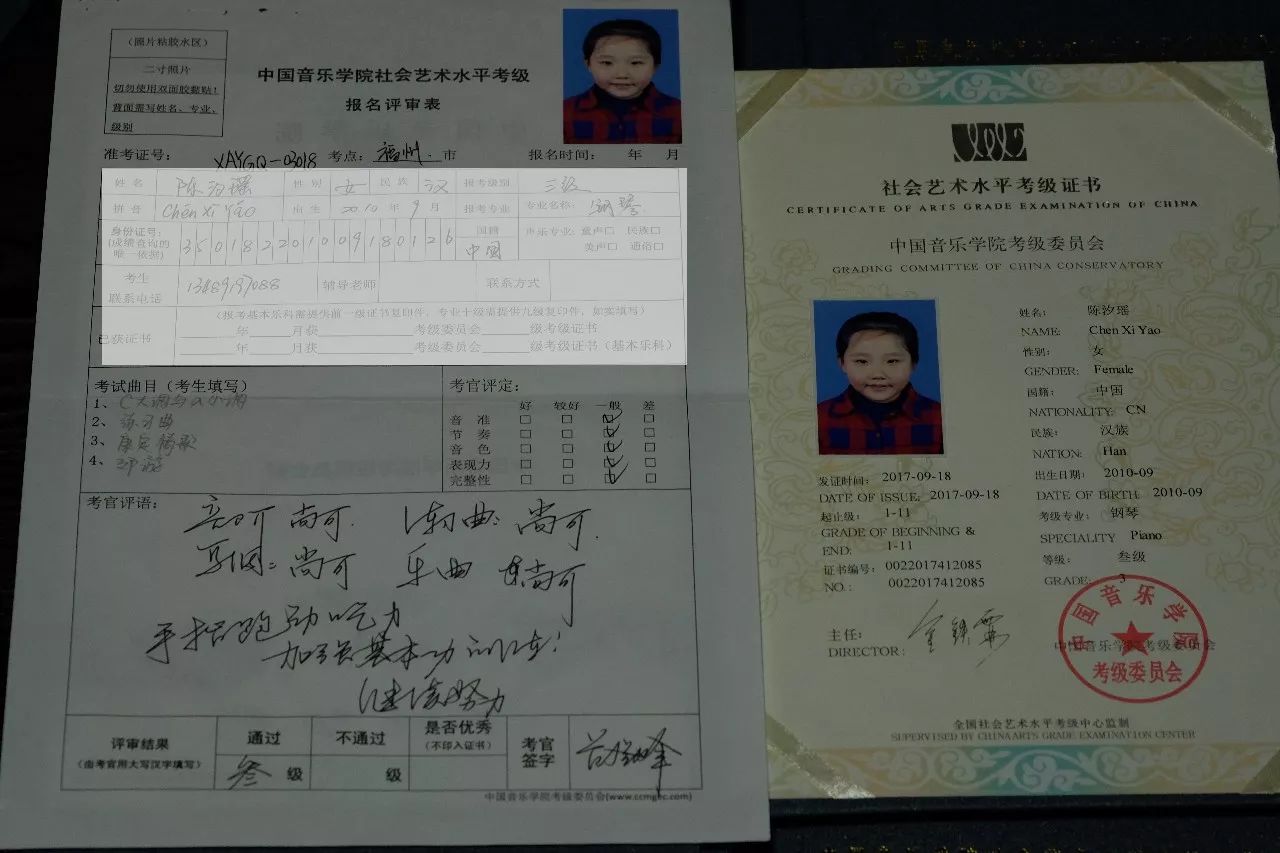 (照片粘胶水区)
二寸照片
切勿使用双面胶黏贴!
背面需写姓名、专业、
级别
中国音乐学院社会艺术水平考级
报名评审表
准考证号: XAYGQ-03018 考点: 福州 市 报名时间: 年 月
姓名 陈汐瑶 性别 女 民族 汉 报考级别 三级
拼音 Chén Xī Yáo 出生 2010 年 9 月 报考专业 专业名称: 钢琴
身份证号:
(成绩查询的
唯一依据)
350182201009180126
国籍
中国
声乐专业: 童声□ 民族□
美声□ 通俗□
考生
联系电话
辅导老师 联系方式
(报考基本乐科需提供前一级证书复印件,专业十级需提供九级复印件,如实填写)
已获证书
年 月获 考级委员会 级考级证书
年 月获 考级委员会 级考级证书(基本乐科)
考试曲目(考生填写)
1、C大调与a小调
2、练习曲
3、
4、
考官评定:
好 较好 一般 差
音准 □ □ ☑ □
节奏 □ □ ☑ □
音色 □ □ ☑ □
表现力 □ □ ☑ □
完整性 □ □ ☑ □
考官评语:
音阶 尚可. 练习曲: 尚可.
复调: 尚可 乐曲 尚可
手指跑动吃力
加强基本功训练!
继续努力
评审结果
(由考官用大写汉字填写)
通过 不通过 是否优秀
(不印入证书)
叁 级 级
考官
签字
中国音乐学院考级委员会(www.ccmgec.com)
社会艺术水平考级证书
CERTIFICATE OF ARTS GRADE EXAMINATION OF CHINA
中国音乐学院考级委员会
GRADING COMMITTEE OF CHINA CONSERVATORY
姓名: 陈汐瑶
NAME: Chen Xi Yao
性别: 女
GENDER: Female
国籍: 中国
NATIONALITY: CN
民族: 汉族
NATION: Han
出生日期: 2010-09
DATE OF BIRTH: 2010-09
考级专业: 钢琴
SPECIALITY Piano
等级: 叁级
GRADE: 3
发证时间: 2017-09-18
DATE OF ISSUE: 2017-09-18
起止级: 1-11
GRADE OF BEGINNING &
END: 1-11
证书编号: 0022017412085
NO.: 0022017412085
主任:
DIRECTOR:
中国音乐学院考级委员会
中国音乐学院
考级委员会
全国社会艺术水平考级中心监制
SUPERVISED BY CHINA ARTS GRADE EXAMINATION CENTER